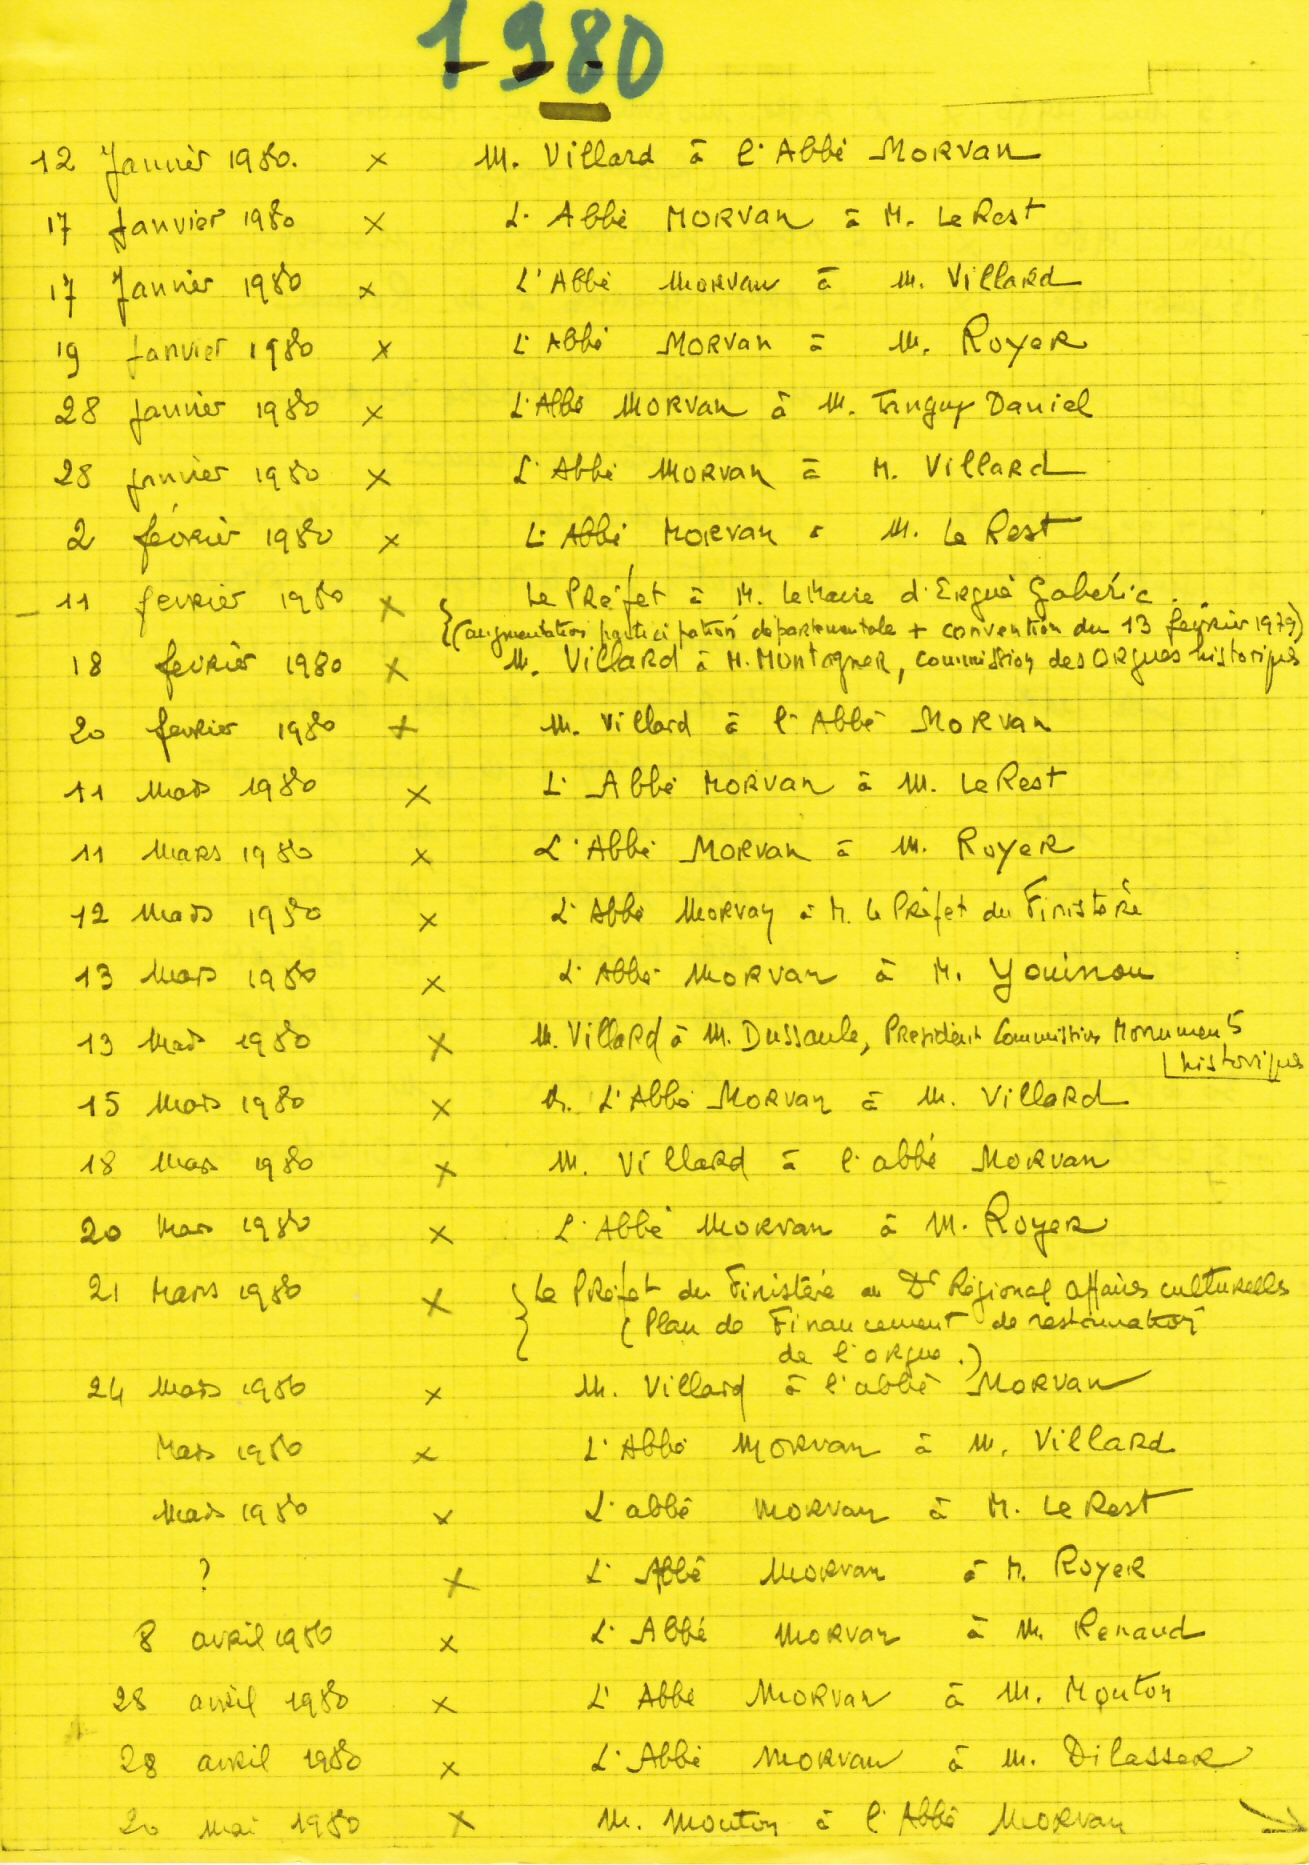 1980
12 Janvier 1980. x M. Villard à l'Abbé MORVAN
17 Janvier 1980 x L'Abbé MORVAN à M. Le Rest
17 Janvier 1980 x L'Abbé MORVAN à M. Villard
19 Janvier 1980 x L'Abbé MORVAN à M. Royer
28 Janvier 1980 x L'Abbé MORVAN à M. Tanguy Daniel
28 janvier 1980 x L'Abbé MORVAN à M. Villard
2 février 1980 x L'Abbé MORVAN à M. Le Rest
11 février 1980 x Le Préfet à M. Le Maire d'Ergué Gabéric.
(augmentation participation départementale + convention du 13 février 1979)
18 février 1980 x M. Villard à M. Montagner, commission des Orgues historiques
20 février 1980 x M. Villard à l'Abbé MORVAN
11 Mars 1980 x L'Abbé MORVAN à M. Le Rest
11 Mars 1980 x L'Abbé MORVAN à M. Royer
12 Mars 1980 x L'Abbé MORVAN à M. le Préfet du Finistère
13 Mars 1980 x L'Abbé MORVAN à M. Youinou
13 Mars 1980 x M. Villard à M. Dussaule, Président Commission Monuments
historiques
15 Mars 1980 x L'Abbé MORVAN à M. Villard
18 Mars 1980 x M. Villard à l'abbé MORVAN
20 Mars 1980 x L'Abbé MORVAN à M. Royer
21 Mars 1980 x Le Préfet du Finistère au Dr Régional Affaires culturelles
(Plan de Financement de restauration
de l'orgue.)
24 Mars 1980 x M. Villard à l'abbé MORVAN
Mars 1980 x L'Abbé MORVAN à M. Villard
Mars 1980 x L'abbé MORVAN à M. Le Rest
? x L'Abbé MORVAN à M. Royer
8 avril 1980 x L'Abbé MORVAN à M. Renaud
28 avril 1980 x L'Abbé MORVAN à M. Mouton
28 avril 1980 x L'Abbé MORVAN à M. Dilasser
20 mai 1980 x M. Mouton à l'Abbé MORVAN →